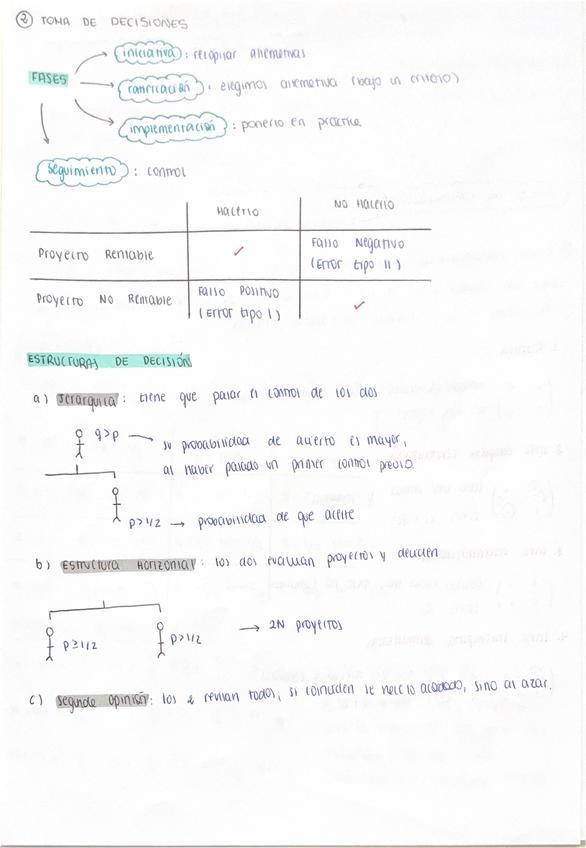 ② TOMA DE DECISIONES
FASES
iniciativa : recopilar alternativas
ratificación : elegimos alternativa (bajo un criterio)
implementación : ponerlo en práctica
seguimiento : control
Hacerlo NO Hacerlo
Proyecto Rentable ✓ Falso Negativo
(Error tipo II)
Proyecto NO Rentable Falso Positivo ✓
(Error tipo I)
ESTRUCTURAS DE DECISIÓN
a) Jerárquica : tiene que pasar el control de los dos
q>p → su probabilidad de acierto es mayor,
al haber pasado un primer control previo.
p>1/2 → probabilidad de que acierte
b) Estructura Horizontal : los dos evalúan proyectos y deciden
p≥1/2 p>1/2 → 2N proyectos
c) Segunda opinión : los 2 revisan todos, si coinciden se hace lo acordado, sino al azar.